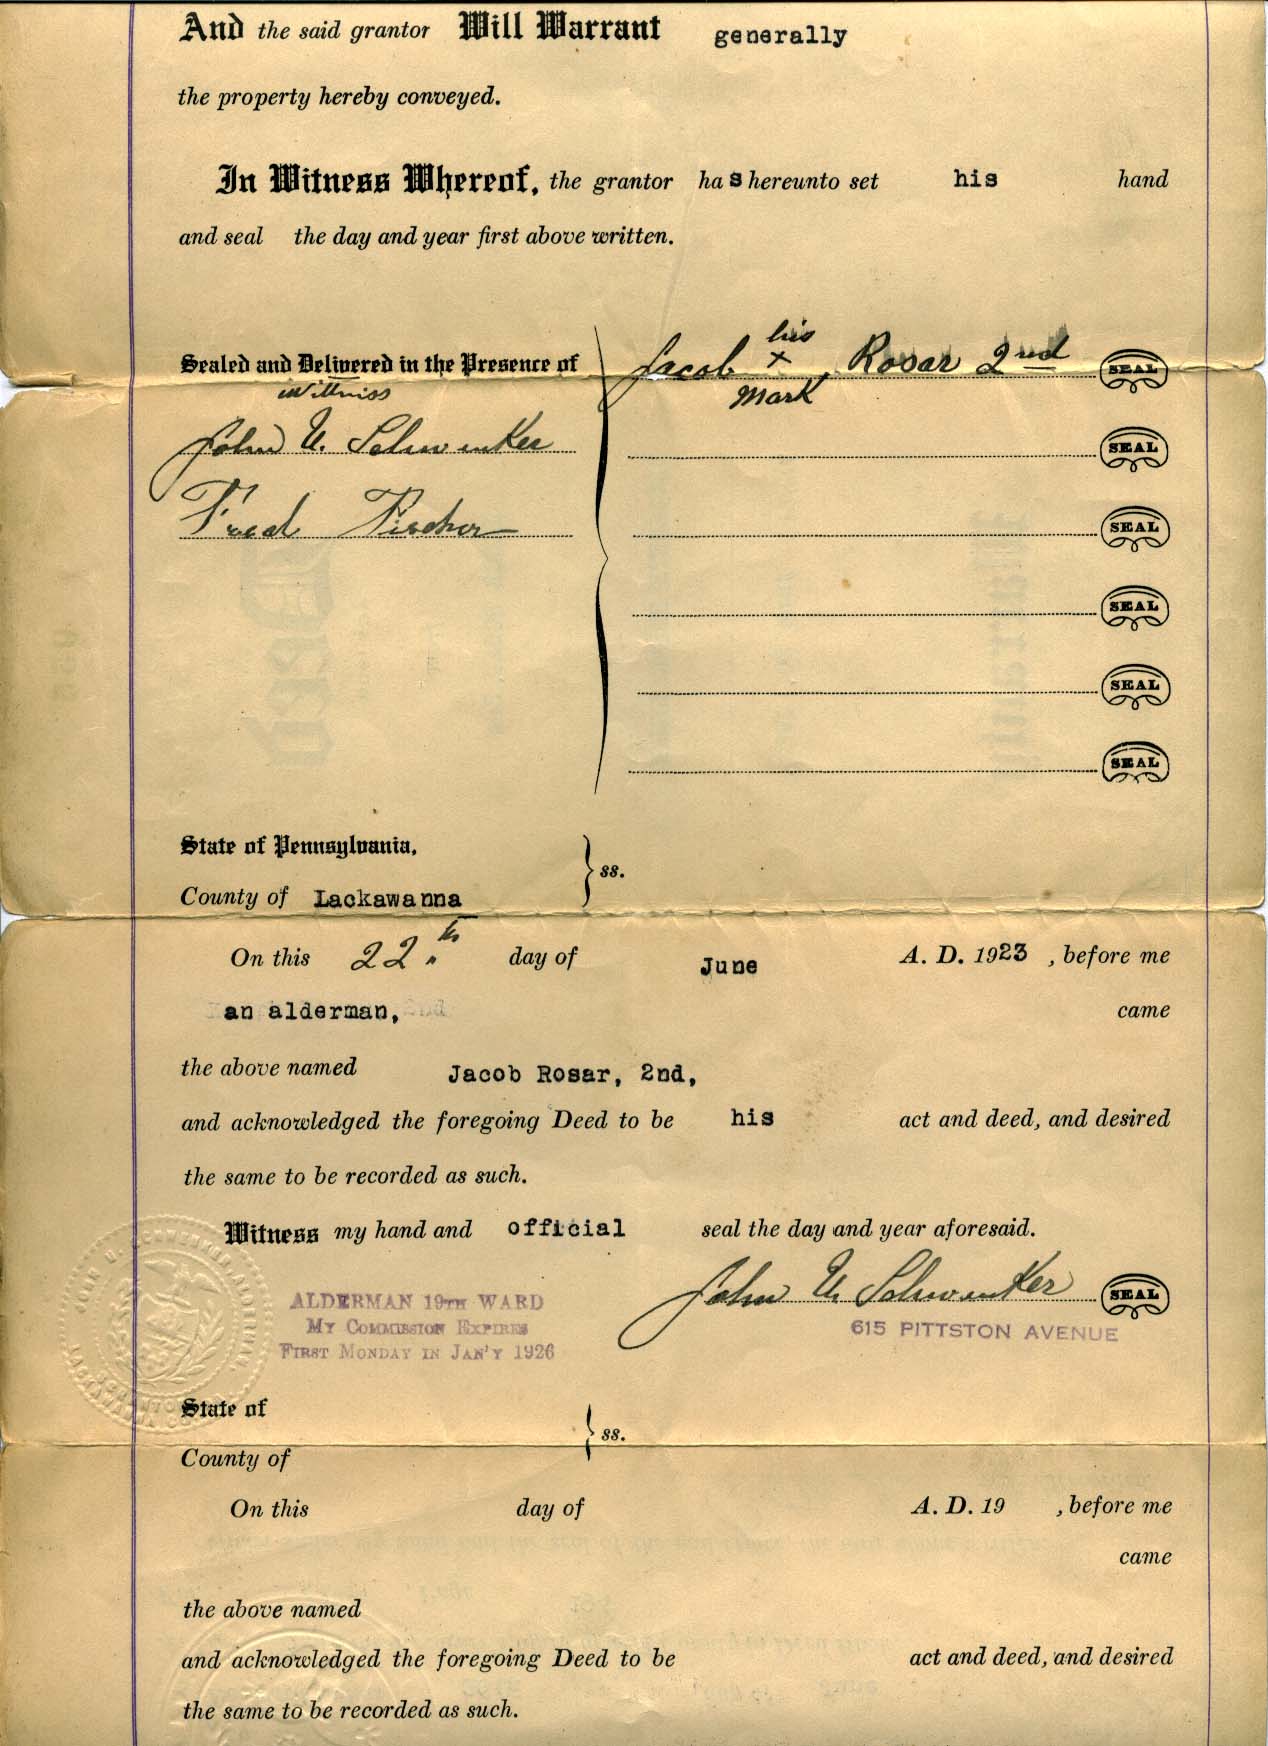 And the said grantor Will Warrant generally
the property hereby conveyed.
In Witness Whereof, the grantor has hereunto set his hand
and seal the day and year first above written.
Sealed and Delivered in the Presence of
Wittniss
John U. Schwenker
Fred Fischer
his
Jacob x Rosar 2nd SEAL
Mark
SEAL
SEAL
SEAL
SEAL
SEAL
State of Pennsylvania,
County of Lackawanna
ss.
On this 22.th day of June A. D. 1923 , before me
an alderman, came
the above named Jacob Rosar, 2nd,
and acknowledged the foregoing Deed to be his act and deed, and desired
the same to be recorded as such.
Witness my hand and official seal the day and year aforesaid.
John U. Schwenker SEAL
615 PITTSTON AVENUE
ALDERMAN 19TH WARD
MY COMMISSION EXPIRES
FIRST MONDAY IN JAN'Y 1926
State of
County of
ss.
On this day of A. D. 19 , before me
came
the above named
and acknowledged the foregoing Deed to be act and deed, and desired
the same to be recorded as such.